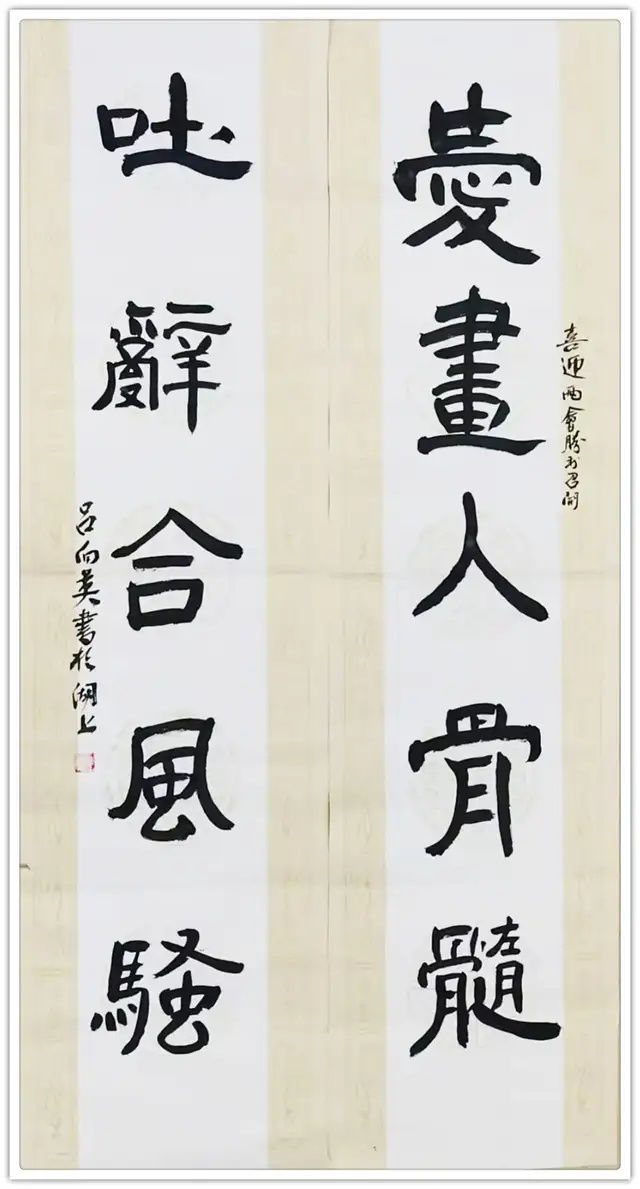 喜迎両會勝利召開
愛畫人骨髓
吐辭合風騷
吕向英書於湖上